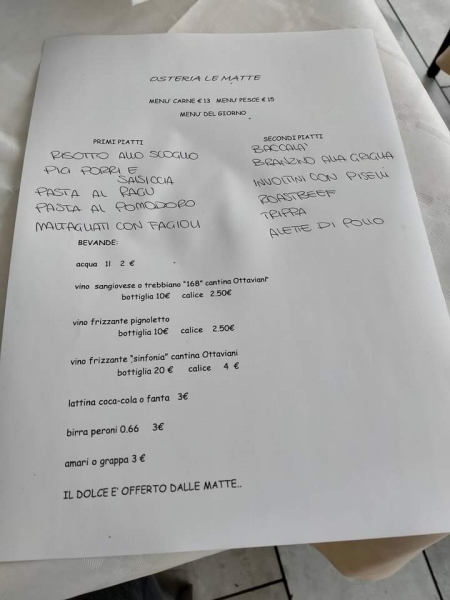 OSTERIA LE MATTE
MENU' CARNE € 13 MENU' PESCE € 15
MENU' DEL GIORNO
PRIMI PIATTI
RISOTTO ALLO SCOGLIO
PIG PORRI E
SALSICCIA
PASTA AL RAGU
PASTA AL POMODORO
MALTAGLIATI CON FAGIOLI
SECONDI PIATTI
BACCALA'
BRANZINO ALLA GRIGLIA
INVOLTINI CON PISELLI
ROASTBEEF
TRIPPA
ALETTE DI POLLO
BEVANDE:
acqua 1l 2 €
vino sangiovese o trebbiano "168" cantina Ottaviani
bottiglia 10€ calice 2.50€
vino frizzante pignoletto
bottiglia 10€ calice 2.50€
vino frizzante "sinfonia" cantina Ottaviani
bottiglia 20 € calice 4 €
lattina coca-cola o fanta 3€
birra peroni 0.66 3€
amari o grappa 3 €
IL DOLCE E' OFFERTO DALLE MATTE..